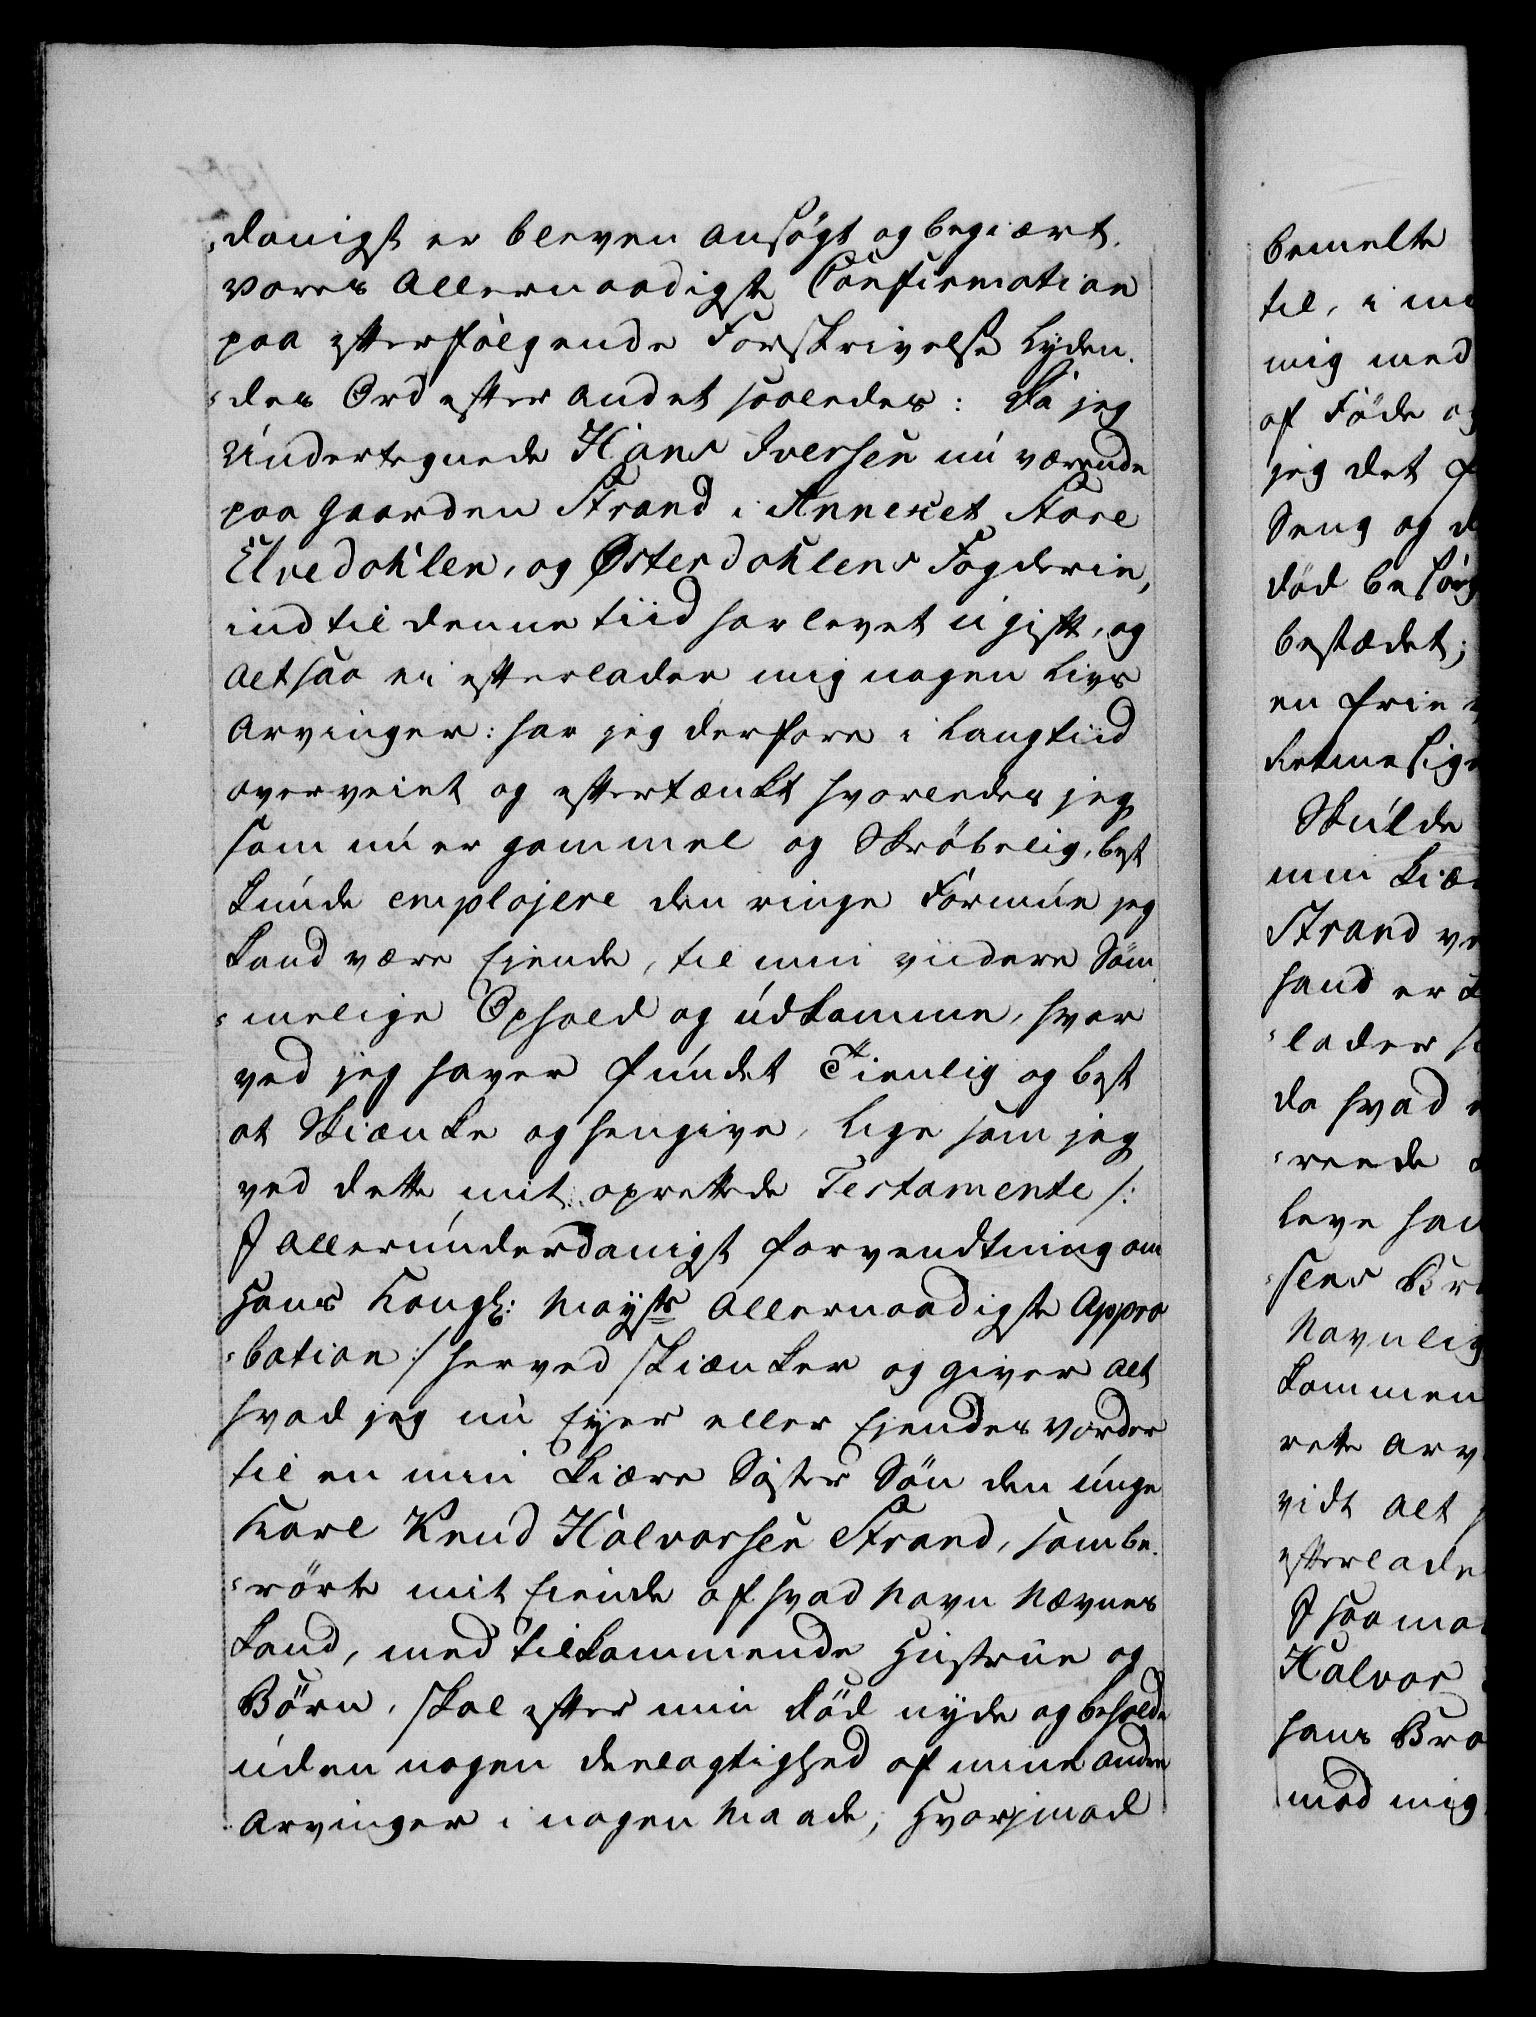 danigst er bleven ansøgt og begiært.
vores Allernaadigste Confirmation
paa efterfølgende Forskrivelse lyden-
des Ord efter andet saaledes: Da jeg
Undertegnede Hans Iversen nu værende
paa Gaarden Strand i Annexet Store
Elvedahlen, og Østerdahlens Fogderie,
ind til denne tiid har levet ugift, og
altsaa ei efterlader mig nogen Livs
Arvinger: har jeg derfore i lang tiid
overveiet og eftertænkt hvorledes jeg
som nu er gammel og Skrøbelig, best
kunde employere den ringe Formue jeg
kand være Eyende, til min viidere Søm-
melige Ophold og udkomme, hvor
ved jeg haver fundet Tienlig og best
at Skiænke og hengive, lige som jeg
ved dette mit oprettede Testamente /:
I allerunderdanigst forvendtning om
Hans Kongl: Mayts Allernaadigste Appro
bation :/ herved Skiænker og giver alt
hvad jeg nu Eyer eller Eyendes vorder
til en min kiære Søster Søn den unge
Karl Knud Halvorsen Strand, som be-
rørte mit Eiende af hvad Navn Nævnes
kand, med tilkommende Hustrue og
Børn, skal efter min Død nyde og beholde
uden nogen deelagtighed af mine andre
Arvinger i nogen Maade; Hvorimod
bemelte
til, i
mig med
af Føde
jeg det
Seng og
død
bestædet;
en frie

Skulde
min
Strand
hand er
lader
da hvad
reede
leve
sens
Navnlig
kommen
rette
vidt alt
efterlade
I saa
Halvor
hans
mod mig